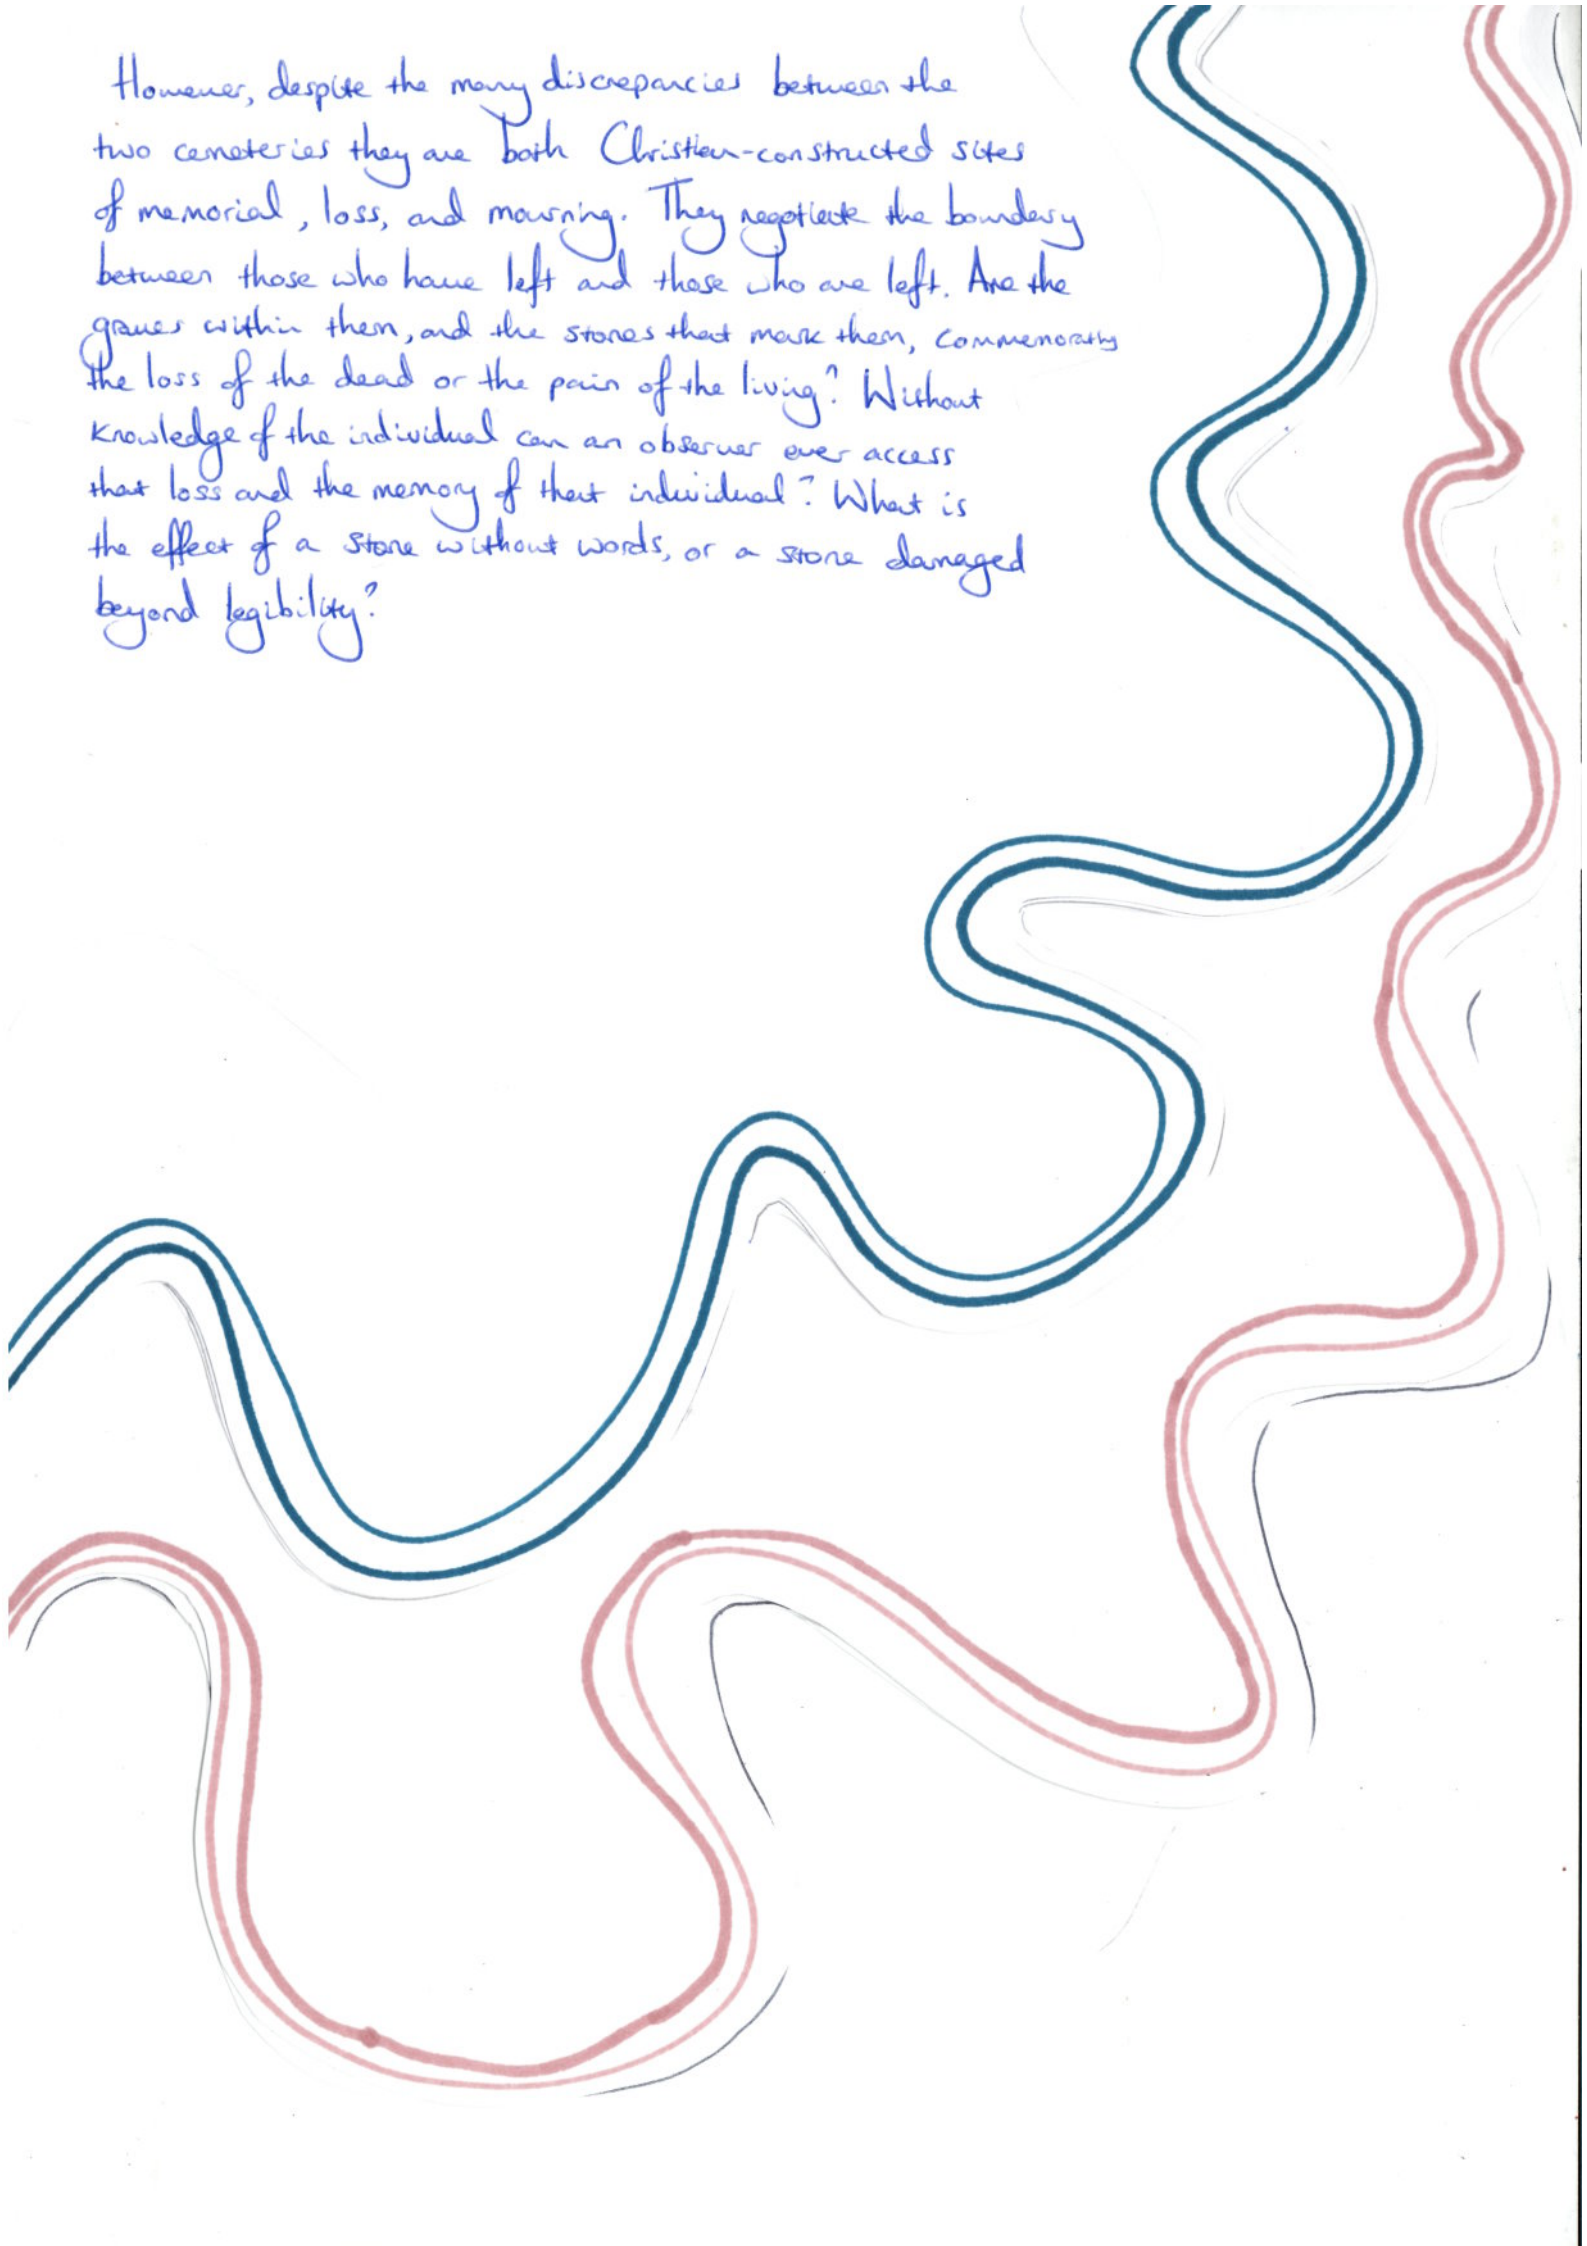 However, despite the many discrepancies between the
two cemeteries they are both Christian-constructed sites
of memorial, loss, and mourning. They negotiate the boundary
between those who have left and those who are left. Are the
graves within them, and the stones that mark them, commemorating
the loss of the dead or the pain of the living? Without
knowledge of the individual can an observer ever access
that loss and the memory of that individual? What is
the effect of a stone without words, or a stone damaged
beyond legibility?